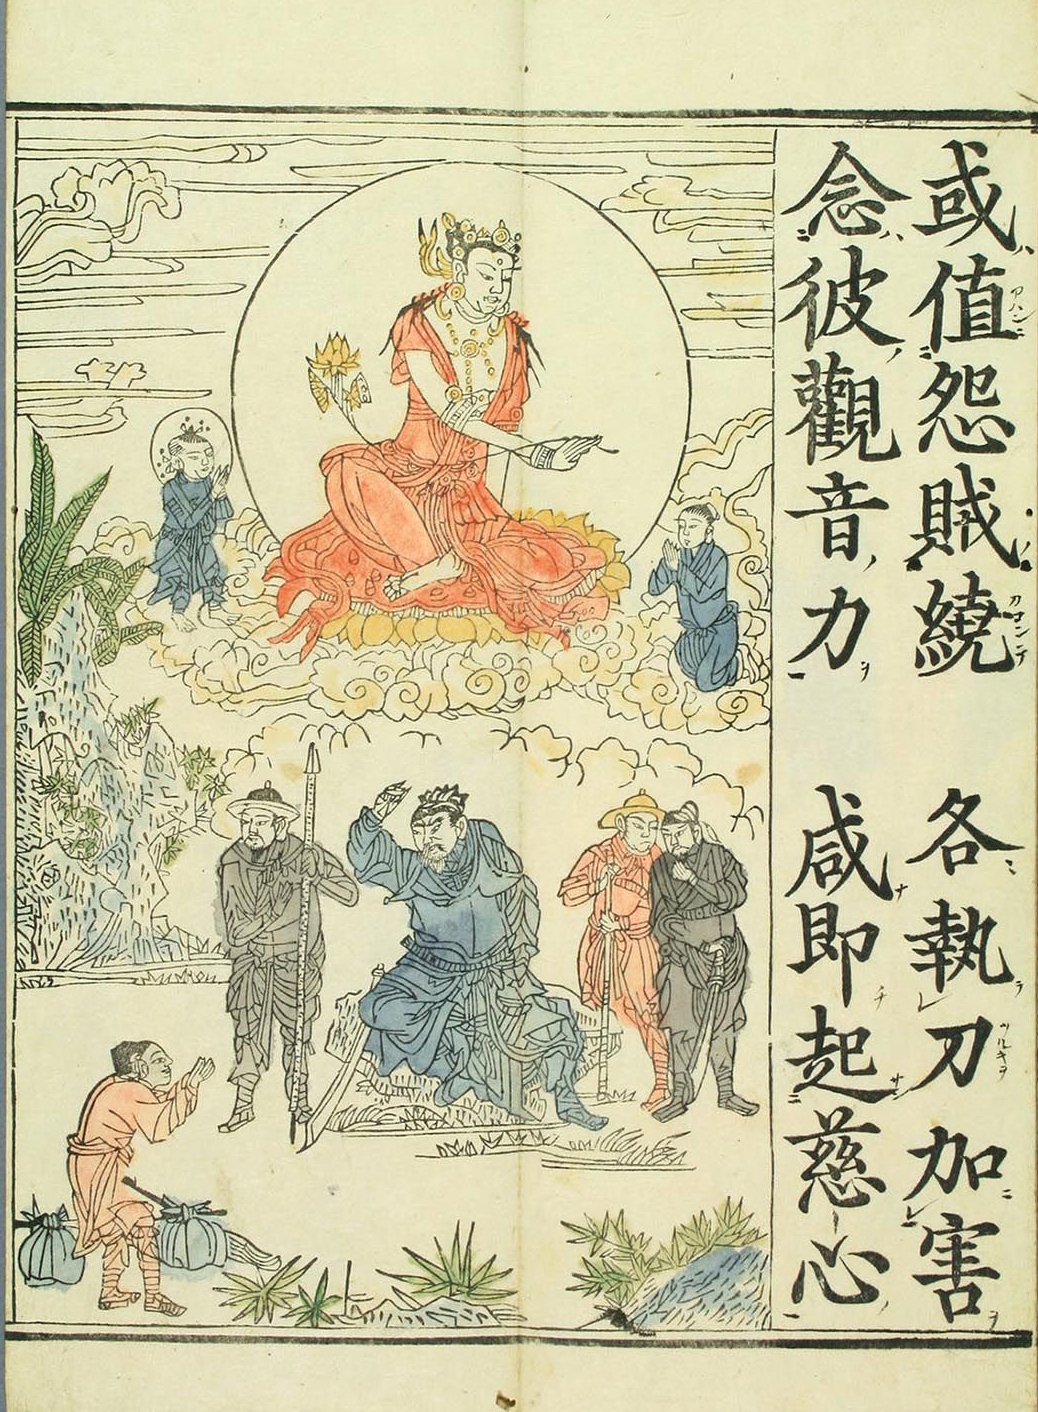 或値怨賊繞　各執刀加害
念彼觀音力　咸即起慈心